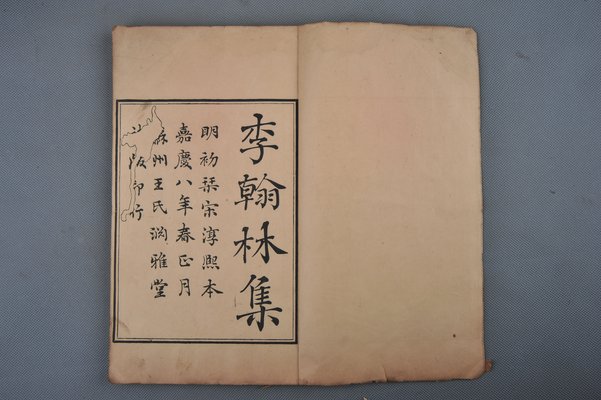 李翰林集
明初栞宋淳熙本
嘉慶八年春正月
蘇州王氏淵雅堂
版印行